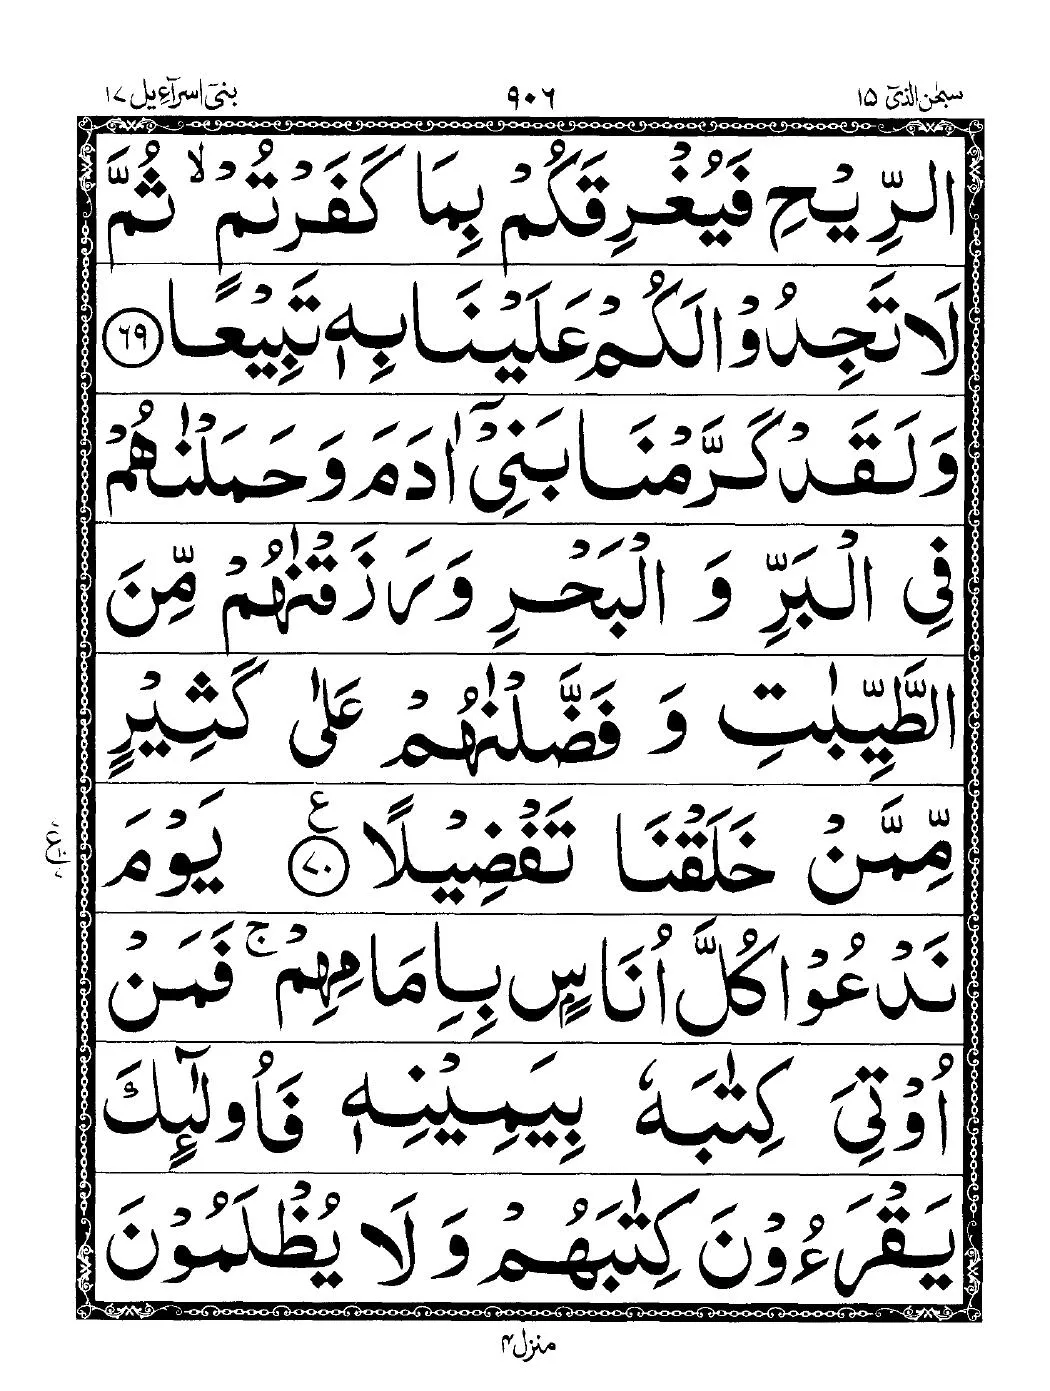 سبحٰن الذیٓ ١٥
٩٠٦
بنیٓ اسرآءیل ١٧
الرِّيْحِ فَيُغْرِقَكُمْ بِمَا كَفَرْتُمْ ۙ ثُمَّ
لَا تَجِدُوْا لَكُمْ عَلَيْنَا بِهٖ تَبِيْعًا ٦٩
وَلَقَدْ كَرَّمْنَا بَنِيْٓ اٰدَمَ وَحَمَلْنٰهُمْ
فِي الْبَرِّ وَ الْبَحْرِ وَرَزَقْنٰهُمْ مِّنَ
الطَّيِّبٰتِ وَ فَضَّلْنٰهُمْ عَلٰى كَثِيْرٍ
مِّمَّنْ خَلَقْنَا تَفْضِيْلًا ٧٠ ع يَوْمَ
نَدْعُوْا كُلَّ اُنَاسٍۭ بِاِمَامِهِمْ ۚ فَمَنْ
اُوْتِيَ كِتٰبَهٗ بِيَمِيْنِهٖ فَاُولٰٓئِكَ
يَقْرَءُوْنَ كِتٰبَهُمْ وَلَا يُظْلَمُوْنَ
منزل ۴